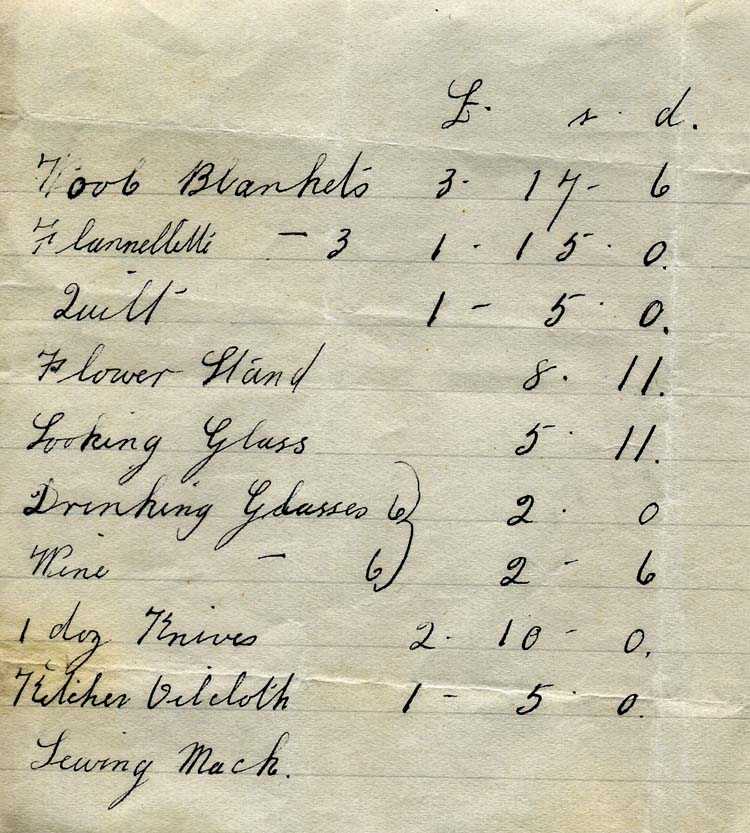 £. s. d.
Wool Blankets 3- 17- 6
Flannellette - 3 1 - 15. 0.
Quilt 1 - 5. 0.
Flower Stand 8. 11.
Looking Glass 5. 11.
Drinking Glasses 6 2. 0
Wine - 6 2 - 6
1 doz Knives 2. 10 - 0.
Kitchen Oilcloth 1 - 5. 0.
Sewing Mach.